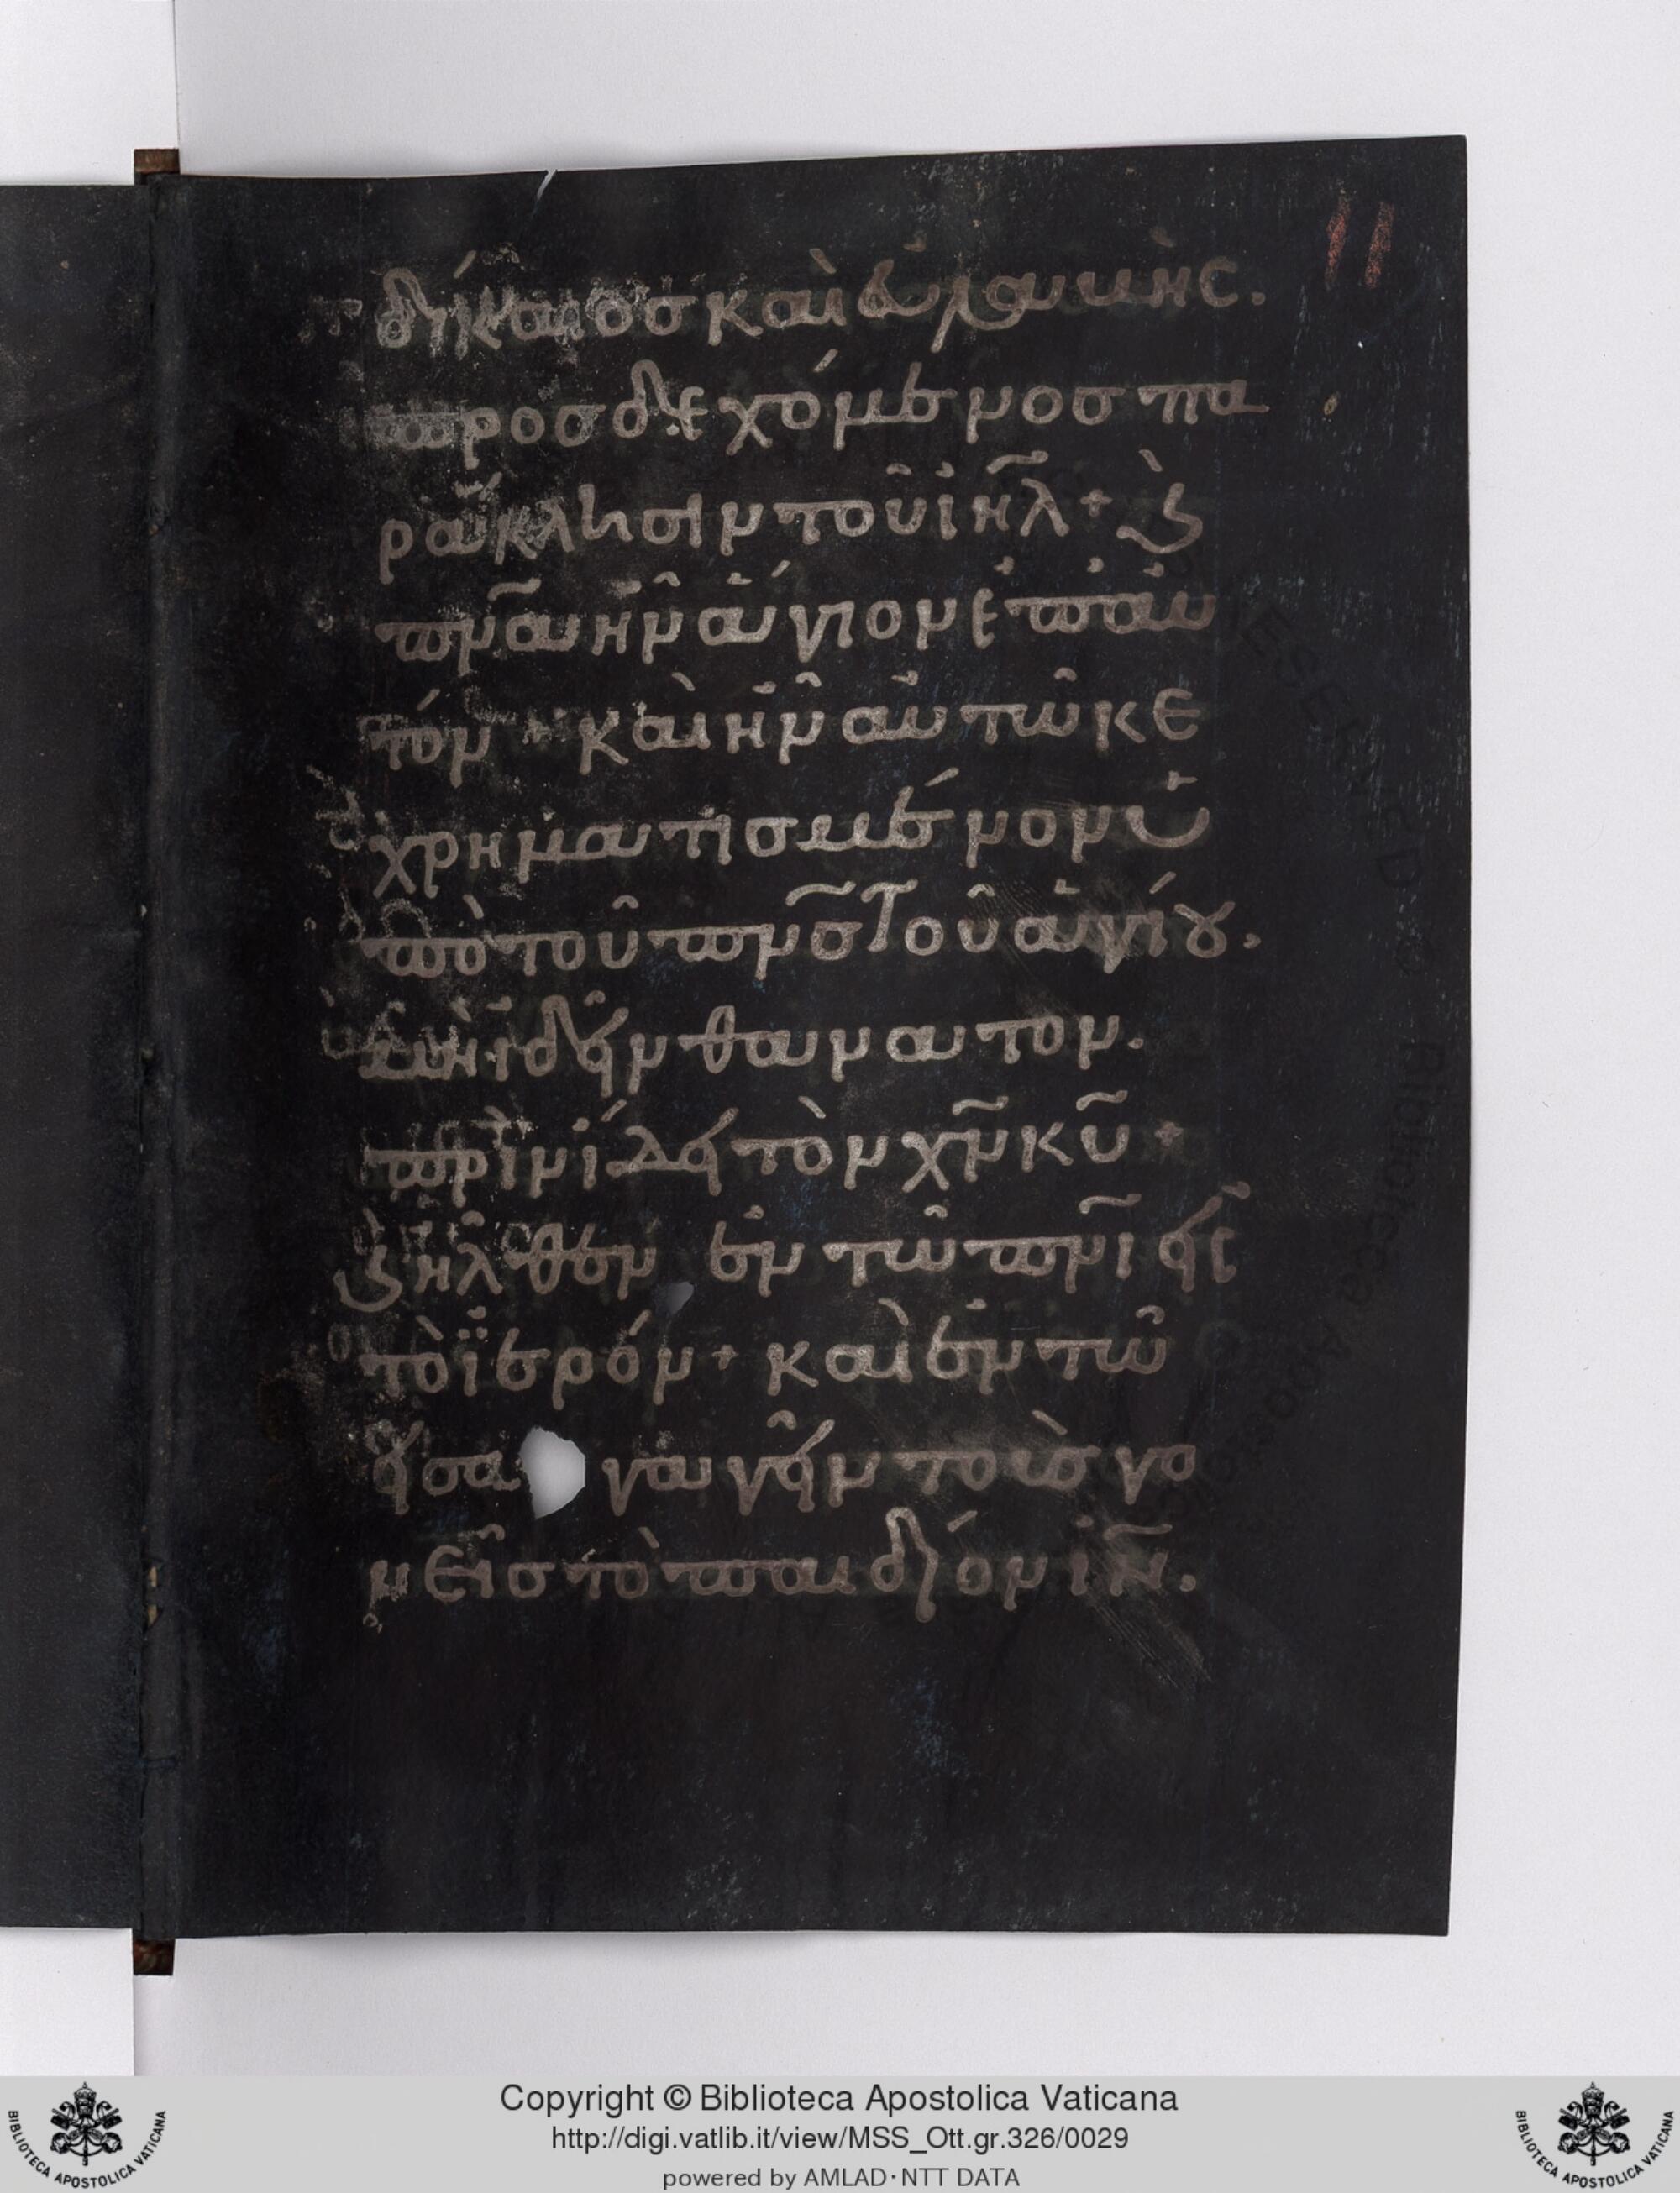 11
δίκαιος καὶ εὐλαβὴς.
προσδεχόμενος πα
ράκλησιν τοῦ ἰηλ + καὶ
πνα ἦν ἅγιον ἐπ αὐ
τόν καὶ ἦν αὐτῶ κε
χρηματισμένον ὑ
πὸ τοῦ πνσ τοῦ ἁγίου.
μὴ ἰδεῖν θανατον.
πρὶν ἴδει τὸν χν κυ +
καὶ ἦλθεν ἐν τῶ πνι εἰς
τὸ ϊερόν + καὶ ἐν τῶ
εἰσα γαγεῖν τοὺσ γο
νεῖσ τὸ παιδίον ιν.
Copyright © Biblioteca Apostolica Vaticana
http://digi.vatlib.it/view/MSS_Ott.gr.326/0029
powered by AMLAD·NTT DATA
BIBLIOTECA APOSTOLICA VATICANA
BIBLIOTECA APOSTOLICA VATICANA